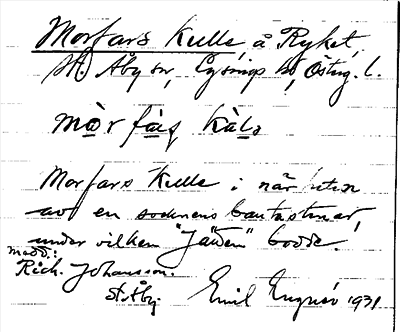 Morfars Kulle, å Ryket,
St. Åby sn, Lysings hd, Östg. l.
mòr fàs kàlә
Morfars Kulle i närheten
av en sockens bautastenar,
under vilken "Jätten" bodde.
Medd.:
Rich. Johansson.
St. Åby.
Emil Engnér 1931